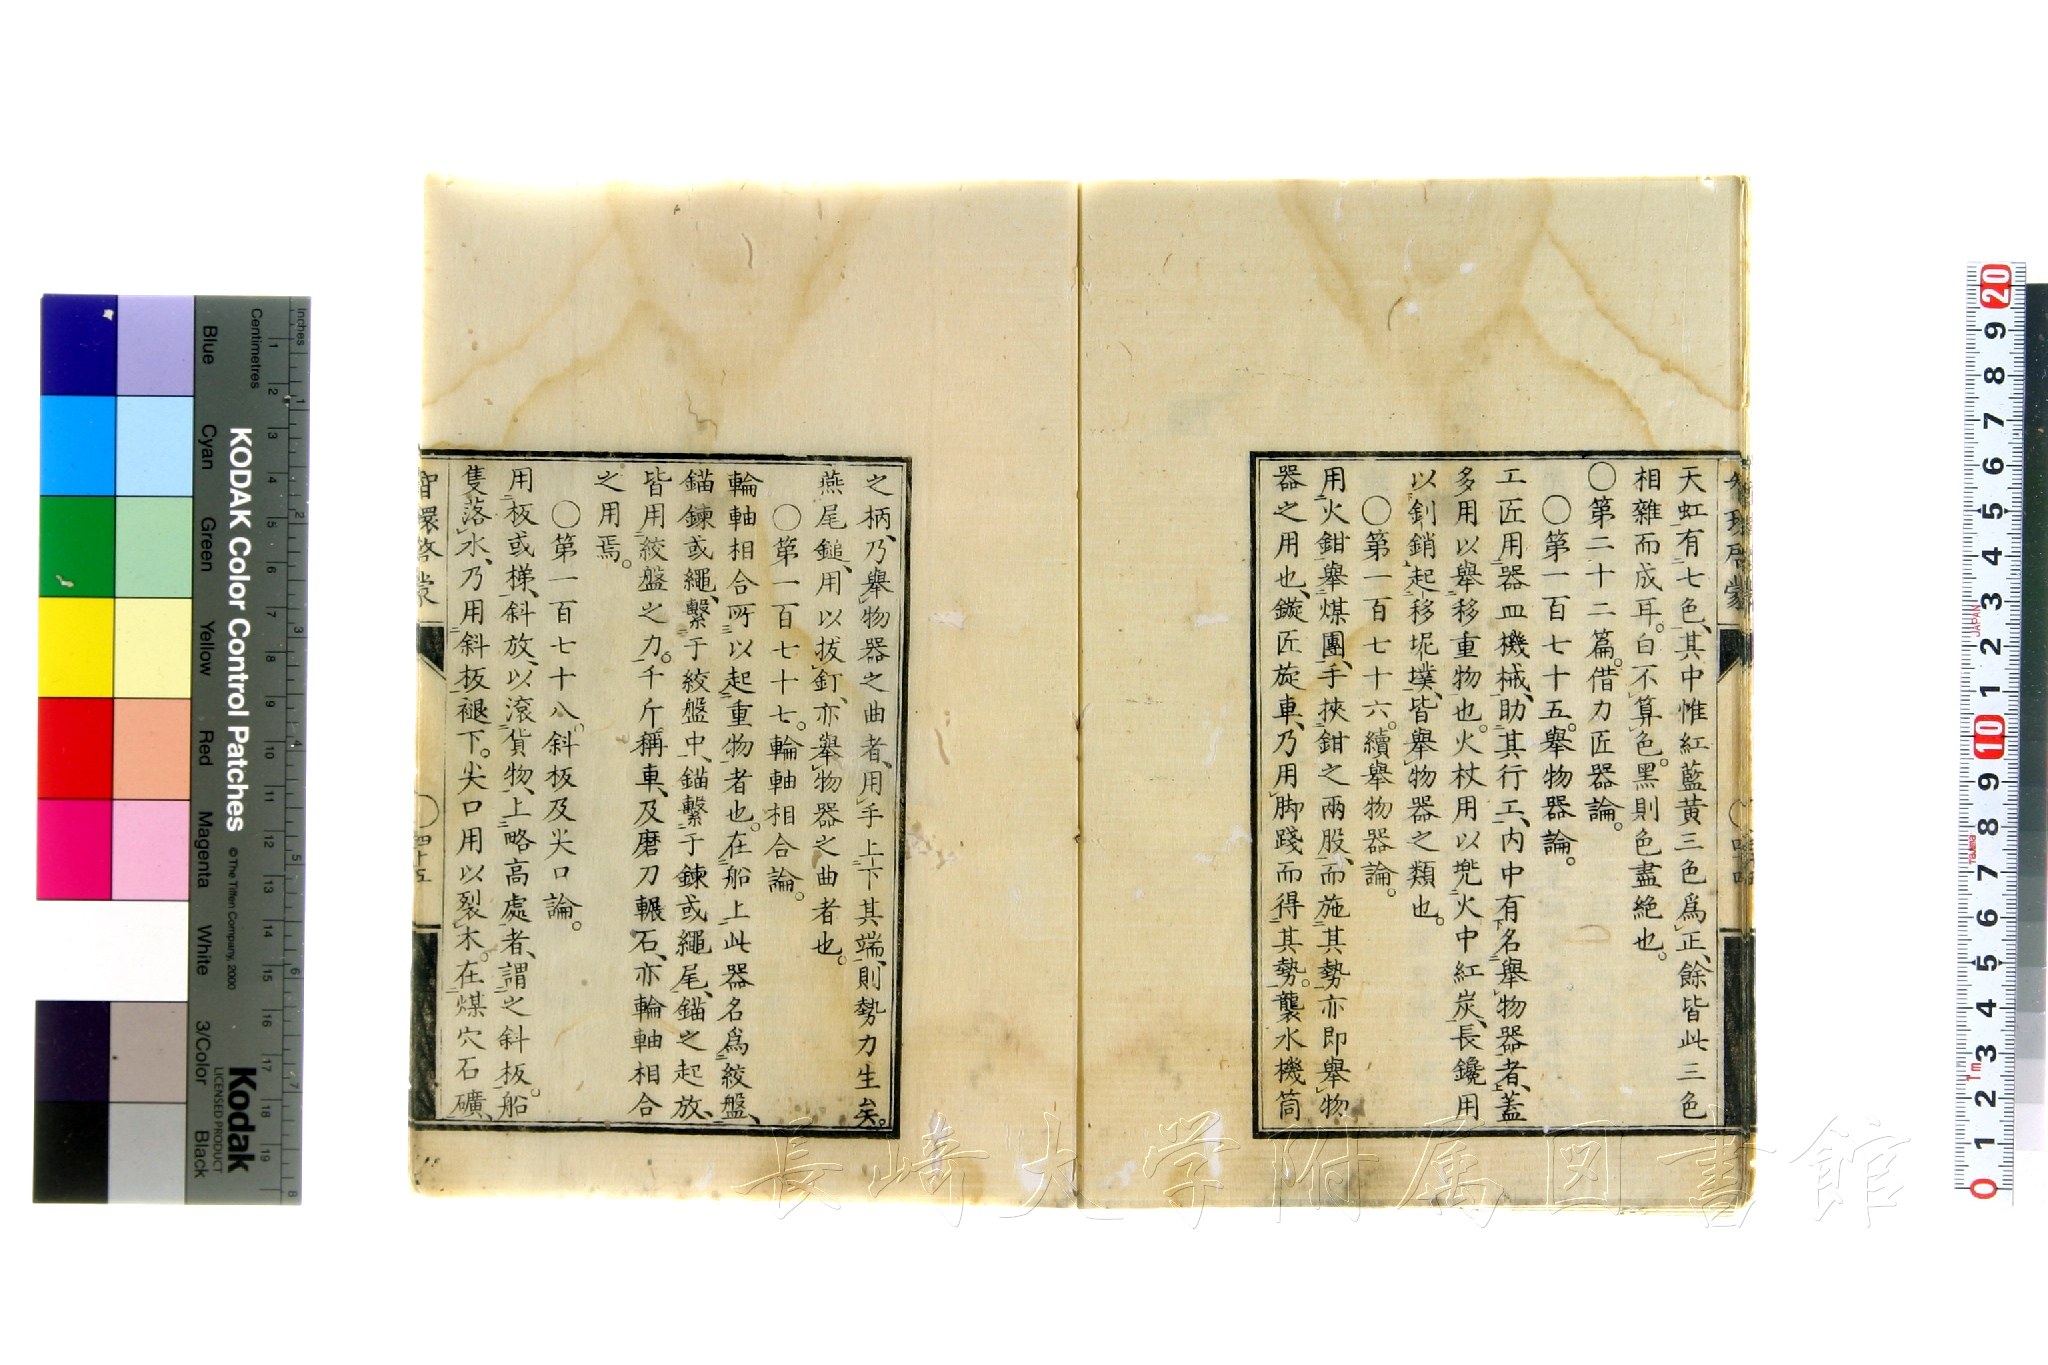 天虹有七色、其中惟紅藍黃三色爲正、餘皆此三色
相雜而成耳。白不算色。黑則色盡絶也。
〇第二十二篇。借力匠器論。
〇第一百七十五。舉物器論。
工匠用器皿機械、助其行工、内中有名舉物器者、蓋
多用以舉移重物也。火杖用以兠火中紅炭、長鑱用
以釗銷起移坭墣、皆舉物器之類也。
〇第一百七十六。續舉物器論。
用火鉗舉煤團、手挾鉗之兩股、而施其勢亦即舉物
器之用也、鏇匠旋車、乃用脚踐而得其勢。襲水機筒
之柄、乃舉物器之曲者、用手上下其端、則勢力生矣。
燕尾鎚、用以拔釘、亦舉物器之曲者也。
〇第一百七十七。輪軸相合論。
輪軸相合所以起重物者也。在船上此器名爲絞盤、
錨鍊或繩、繫于絞盤中、錨繫于鍊或繩尾、錨之起放、
皆用絞盤之力。千斤稱車、及磨刀輾石、亦輪軸相合
之用焉。
〇第一百七十八。斜板及尖口論。
用板或梯、斜放、以滾貨物、上略高處者、謂之斜板。船
隻落水、乃用斜板褪下。尖口用以裂木。在煤穴石礦、
智環啓蒙
〇 四十五
長崎大学附属図書館
KODAK Color Control Patches
© The Tiffen Company, 2000
Kodak
LICENSED PRODUCT
Inches
Centimetres
Blue
Cyan
Green
Yellow
Red
Magenta
White
3/Color
Black
1 2 3 4 5 6 7 8 9 10 11 12 13 14 15 16 17 18 19
1 2 3 4 5 6 7 8
20 9 8 7 6 5 4 3 2 1 10 9 8 7 6 5 4 3 2 1 0
JAPAN